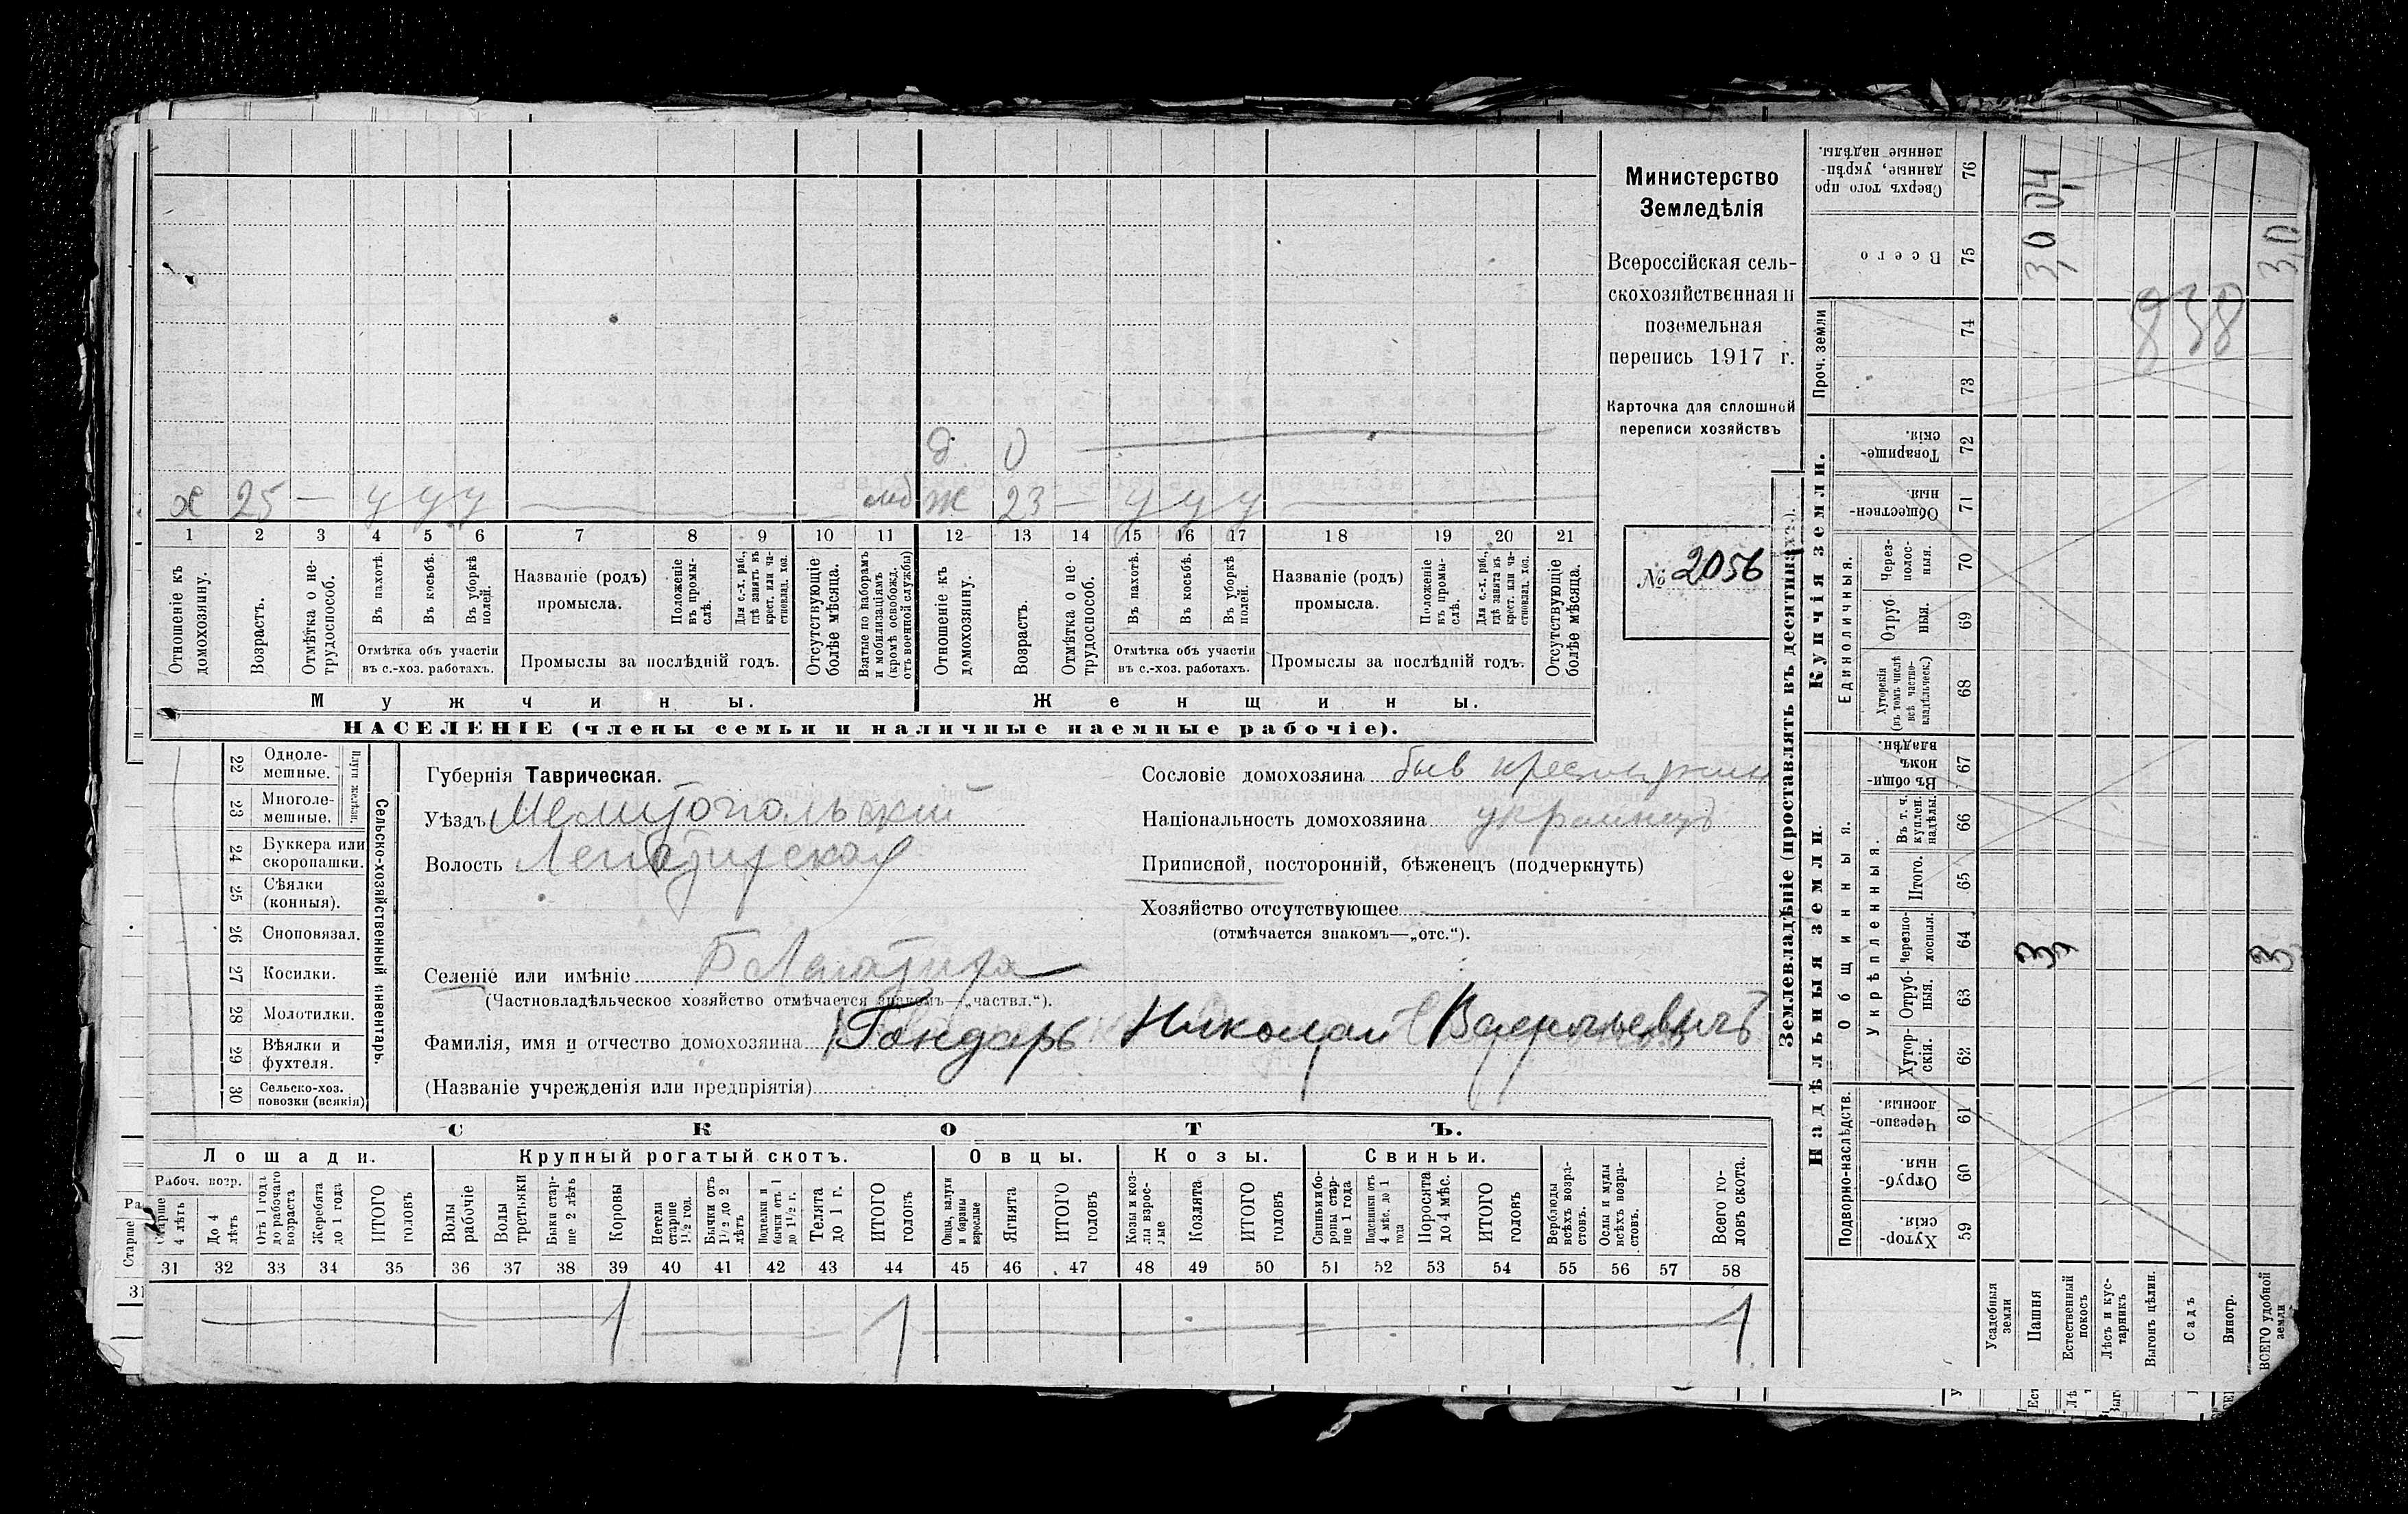 Министерство
Земледѣлія
Всероссійская сель-
скохозяйственная и
поземельная
перепись 1917 г.
Карточка для сплошной
переписи хозяйствъ
№ 2056
д. 0
х 25 — у у у — мб ж 23 — у у у —
1 2 3 4 5 6 7 8 9 10 11 12 13 14 15 16 17 18 19 20 21
Отношеніе къ домохозяину.
Возрастъ.
Отмѣтка о не-трудоспособ.
Въ пахотѣ.
Въ косьбѣ.
Въ уборкѣ полей.
Отмѣтка объ участіи
въ с.-хоз. работахъ.
Названіе (родъ)
промысла.
Положеніе въ промы-слѣ.
Для с.-х. раб., гдѣ занятъ въ крест. или ча-стновлад. хоз.
Промыслы за послѣдній годъ.
Отсутствующіе болѣе мѣсяца.
Взятые по наборамъ и мобилизаціямъ (кромѣ освобожд. отъ военной службы)
Отношеніе къ домохозяину.
Возрастъ.
Отмѣтка о не-трудоспособ.
Въ пахотѣ.
Въ косьбѣ.
Въ уборкѣ полей.
Отмѣтка объ участіи
въ с.-хоз. работахъ.
Названіе (родъ)
промысла.
Положеніе въ промы-слѣ.
Для с.-х. раб., гдѣ занята въ крест. или ча-стновлад. хоз.
Промыслы за послѣдній годъ.
Отсутствующіе болѣе мѣсяца.
Мужчины.
Женщины.
НАСЕЛЕНІЕ (члены семьи и наличные наемные рабочіе).
22 Одноле-мешные.
23 Многоле-мешные.
Плуги желѣзн.
24 Буккера или скоропашки.
25 Сѣялки (конныя).
26 Сноповязал.
27 Косилки.
28 Молотилки.
29 Вѣялки и фухтеля.
30 Сельско-хоз. повозки (всякія)
Сельско-хозяйственный инвентарь.
Губернія Таврическая.
Уѣздъ Мелитопольский
Волость
Селеніе или имѣніе
(Частновладѣльческое хозяйство отмѣчается знакомъ—„частвл.“).
Фамилія, имя и отчество домохозяина Гондарь Николай Васильевичъ
(Названіе учрежденія или предпріятія)
Сословіе домохозяина быв крестьянин
Національность домохозяина украинецъ
Приписной, посторонній, бѣженецъ (подчеркнуть)
Хозяйство отсутствующее
(отмѣчается знакомъ—„отс.“).
СКОТЪ.
Лошади.
Крупный рогатый скотъ.
Овцы.
Козы.
Свиньи.
Рабоч. возр.
Старше 4 лѣтъ
До 4 лѣтъ
Отъ 1 года до рабочаго возраста
Жеребята до 1 года
ИТОГО головъ
Волы рабочіе
Волы третьяки
Быки стар-ше 2 лѣтъ
Коровы
Нетели старше 1½ год.
Бычки отъ 1½ до 2 лѣтъ
Подтелки и бычки отъ 1 до 1½ г.
Телята до 1 г.
ИТОГО головъ
Овцы, валухи и бараны взрослые
Ягнята
ИТОГО головъ
Козы и коз-лы взрос-лые
Козлята
ИТОГО головъ
Свиньи и бо-ровы стар-ше 1 года
Подсвинки отъ 4 мѣс. до 1 года
Поросята до 4 мѣс.
ИТОГО головъ
Верблюды всѣхъ возра-стовъ.
Ослы и мулы всѣхъ возра-стовъ.
Всего го-ловъ скота.
31 32 33 34 35 36 37 38 39 40 41 42 43 44 45 46 47 48 49 50 51 52 53 54 55 56 57 58
1 1 1
Землевладѣніе (проставлять въ десятинахъ).
Надѣльныя земли.
Купчія земли.
Проч. земли
Подворно-наслѣдств.
Общинныя.
Укрѣпленныя.
Единоличныя.
Хутор-скія. 59
Отруб-ныя. 60
Черезпо-лосныя. 61
Хутор-скія. 62
Отруб-ныя. 63
Черезпо-лосныя. 64
Итого. 65
Въ т. ч. куплен. надѣлы. 66
Въ общин-номъ владѣн. 67
Хуторскія (въ томъ числѣ всѣ частно-владѣльческ.) 68
Отруб-ныя. 69
Через-полос-ныя. 70
Обществен-ныя. 71
Товарище-скія. 72
73
74
Всего 75
Сверхъ того про данные, укрѣп-ленные надѣлы. 76
Усадебныя земли
Пашня
Естественный покосъ
Лѣсъ и кус-тарникъ
Выгонъ цѣлин.
Садъ
Виногр.
ВСЕГО удобной земли
3,0
3,0
838